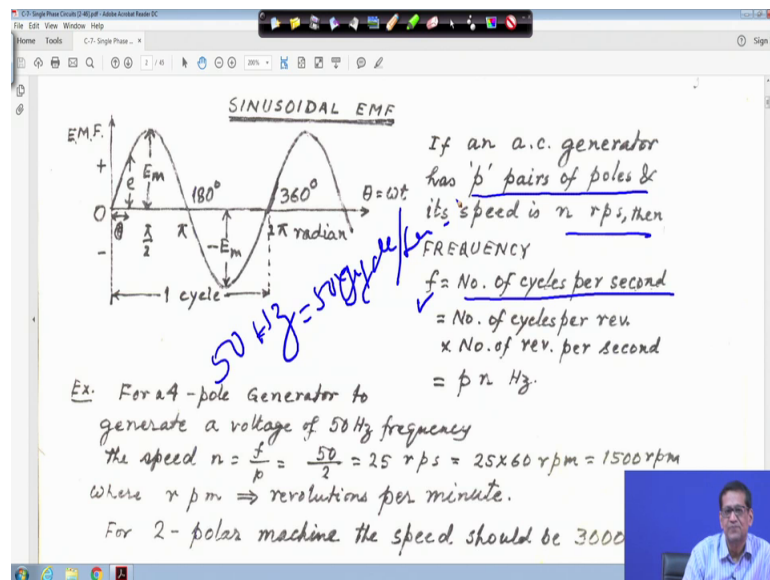 C-7- Single Phase Circuits [2-46].pdf - Adobe Acrobat Reader DC
File Edit View Window Help
Home Tools C-7- Single Phase ... ×
Sign
2 / 45 200%
SINUSOIDAL EMF
E.M.F.
+
e
Em
180°
360°
θ = ωt
0
θ
π/2
π
2π radian
-
-Em
1 cycle
If an a.c. generator
has 'p' pairs of poles &
its speed is n rps, then
FREQUENCY
f = No. of cycles per second
= No. of cycles per rev.
× No. of rev. per second
= p n Hz.
50 Hz = 50 cycle/sec
Ex. For a 4-pole Generator to
generate a voltage of 50 Hz frequency
the speed n = f/p = 50/2 = 25 rps = 25×60 rpm = 1500 rpm
where rpm ⇒ revolutions per minute.
For 2-polar machine the speed should be 3000